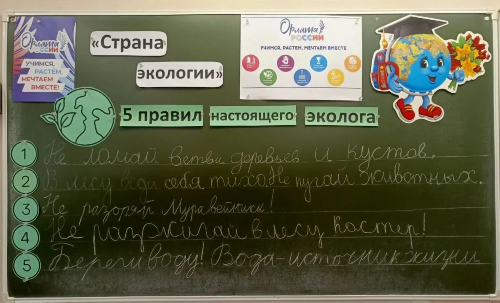 Орлята
РОССИИ
УЧИМСЯ,
РАСТЁМ,
МЕЧТАЕМ
ВМЕСТЕ!
«Страна
экологии»
Орлята
РОССИИ
УЧИМСЯ, РАСТЕМ, МЕЧТАЕМ ВМЕСТЕ
5 правил настоящего эколога
1 Не ломай ветви деревьев и кустов.
2 В лесу веди себя тихо. Не пугай животных.
3 Не разоряй Муравейники!
4 Не разжигай в лесу костер!
5 Береги воду! Вода-источник жизни